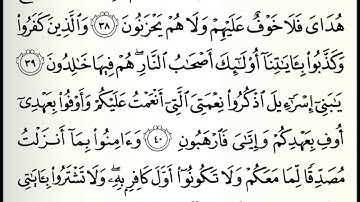 هُدَايَ فَلَا خَوْفٌ عَلَيْهِمْ وَلَا هُمْ يَحْزَنُونَ ٣٨ وَالَّذِينَ كَفَرُوا۟
وَكَذَّبُوا۟ بِـَٔايَـٰتِنَآ أُو۟لَـٰٓئِكَ أَصْحَـٰبُ النَّارِ ۖ هُمْ فِيهَا خَـٰلِدُونَ ٣٩
يَـٰبَنِىٓ إِسْرَٰٓءِيلَ اذْكُرُوا۟ نِعْمَتِىَ الَّتِىٓ أَنْعَمْتُ عَلَيْكُمْ وَأَوْفُوا۟ بِعَهْدِىٓ
أُوفِ بِعَهْدِكُمْ وَإِيَّـٰىَ فَارْهَبُونِ ٤٠ وَءَامِنُوا۟ بِمَآ أَنزَلْتُ
مُصَدِّقًا لِّمَا مَعَكُمْ وَلَا تَكُونُوٓا۟ أَوَّلَ كَافِرٍۭ بِهِۦ ۖ وَلَا تَشْتَرُوا۟ بِـَٔايَـٰتِى